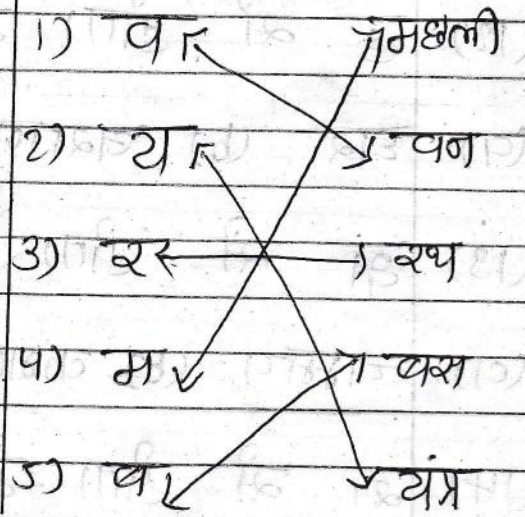 1) व मछली
2) य वन
3) र रथ
4) म बस
5) ब यंत्र